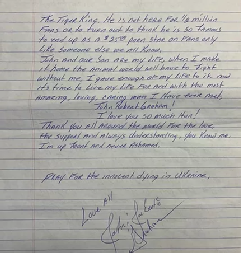 The Tiger King. He is not here for 1/2 million
Fans or to turn out to think he is so famous
to end up as a $35.00 porn star on Fans only
like someone else we all know.
John and our son are my life, when I make
it home the animal world will have to fight
without me, I gave enough of my life to it and
it's time to love my life for and with this most
amazing, loving, caring man I have ever met.
I love you so much Hun!
Thank you all around the world for the love
the support and always understanding, you know me
I'm up front and never ashamed.
pray for the innocent dying in Ukraine,
Love All